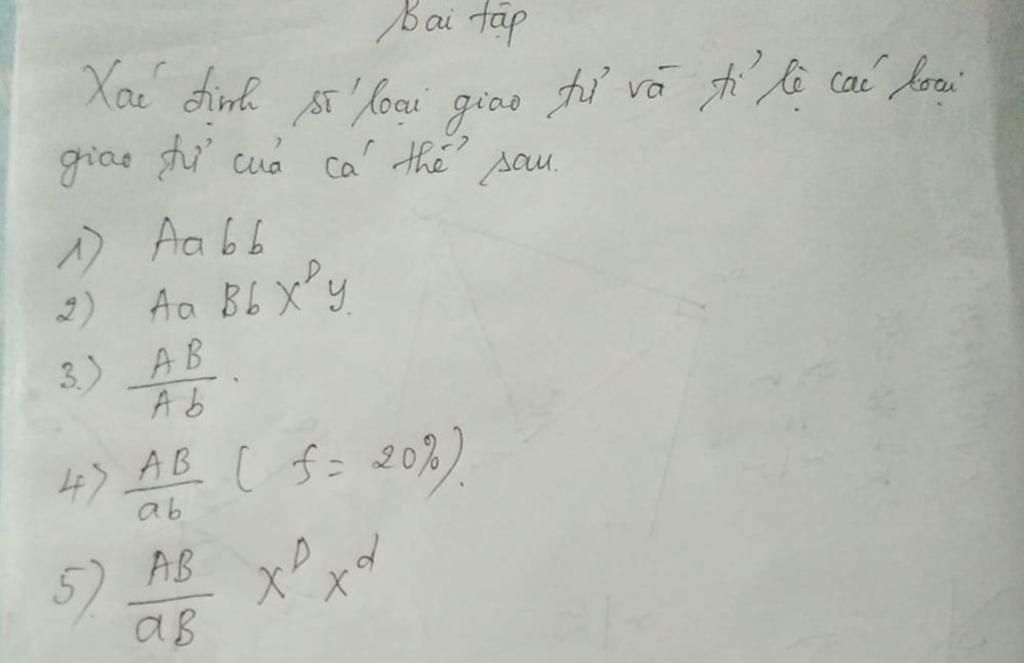 Bài tập
Xác định số loại giao tử và tỉ lệ các loại
giao tử của cá thể sau.
1) Aabb
2) Aa Bb X^D Y.
3.) AB/Ab.
4) AB/ab ( f = 20%).
5) AB/aB X^D X^d